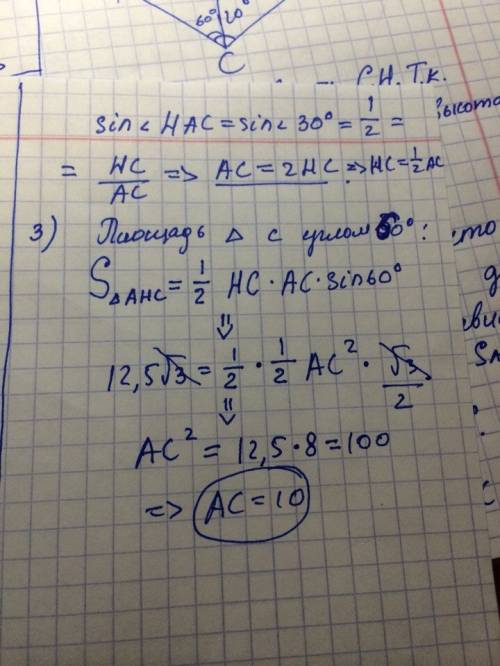 60° 20°
C
Г.Н. Т.к.
sin∠HAC = sin∠30° = 1/2 =
= HC/AC => AC = 2HC => HC = 1/2 AC
3) Площадь △ с углом 60°:
S△AHC = 1/2 HC · AC · sin60°
⇓
12,5√3 = 1/2 · 1/2 AC² · √3/2
⇓
AC² = 12,5 · 8 = 100
=> AC = 10